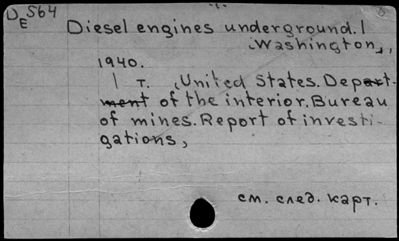 DE 564
Diesel engines underground. |
Washington,
1940.
| т. United States. Depart-
ment of the interior. Bureau
of mines. Report of investi-
gations,
см. след. карт.